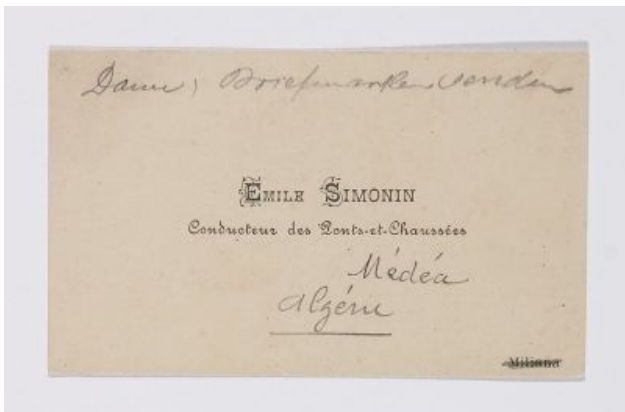 Dann, Briefmarken senden
EMILE SIMONIN
Conducteur des Ponts-et-Chaussées
Médéa
Algérie
Miliana